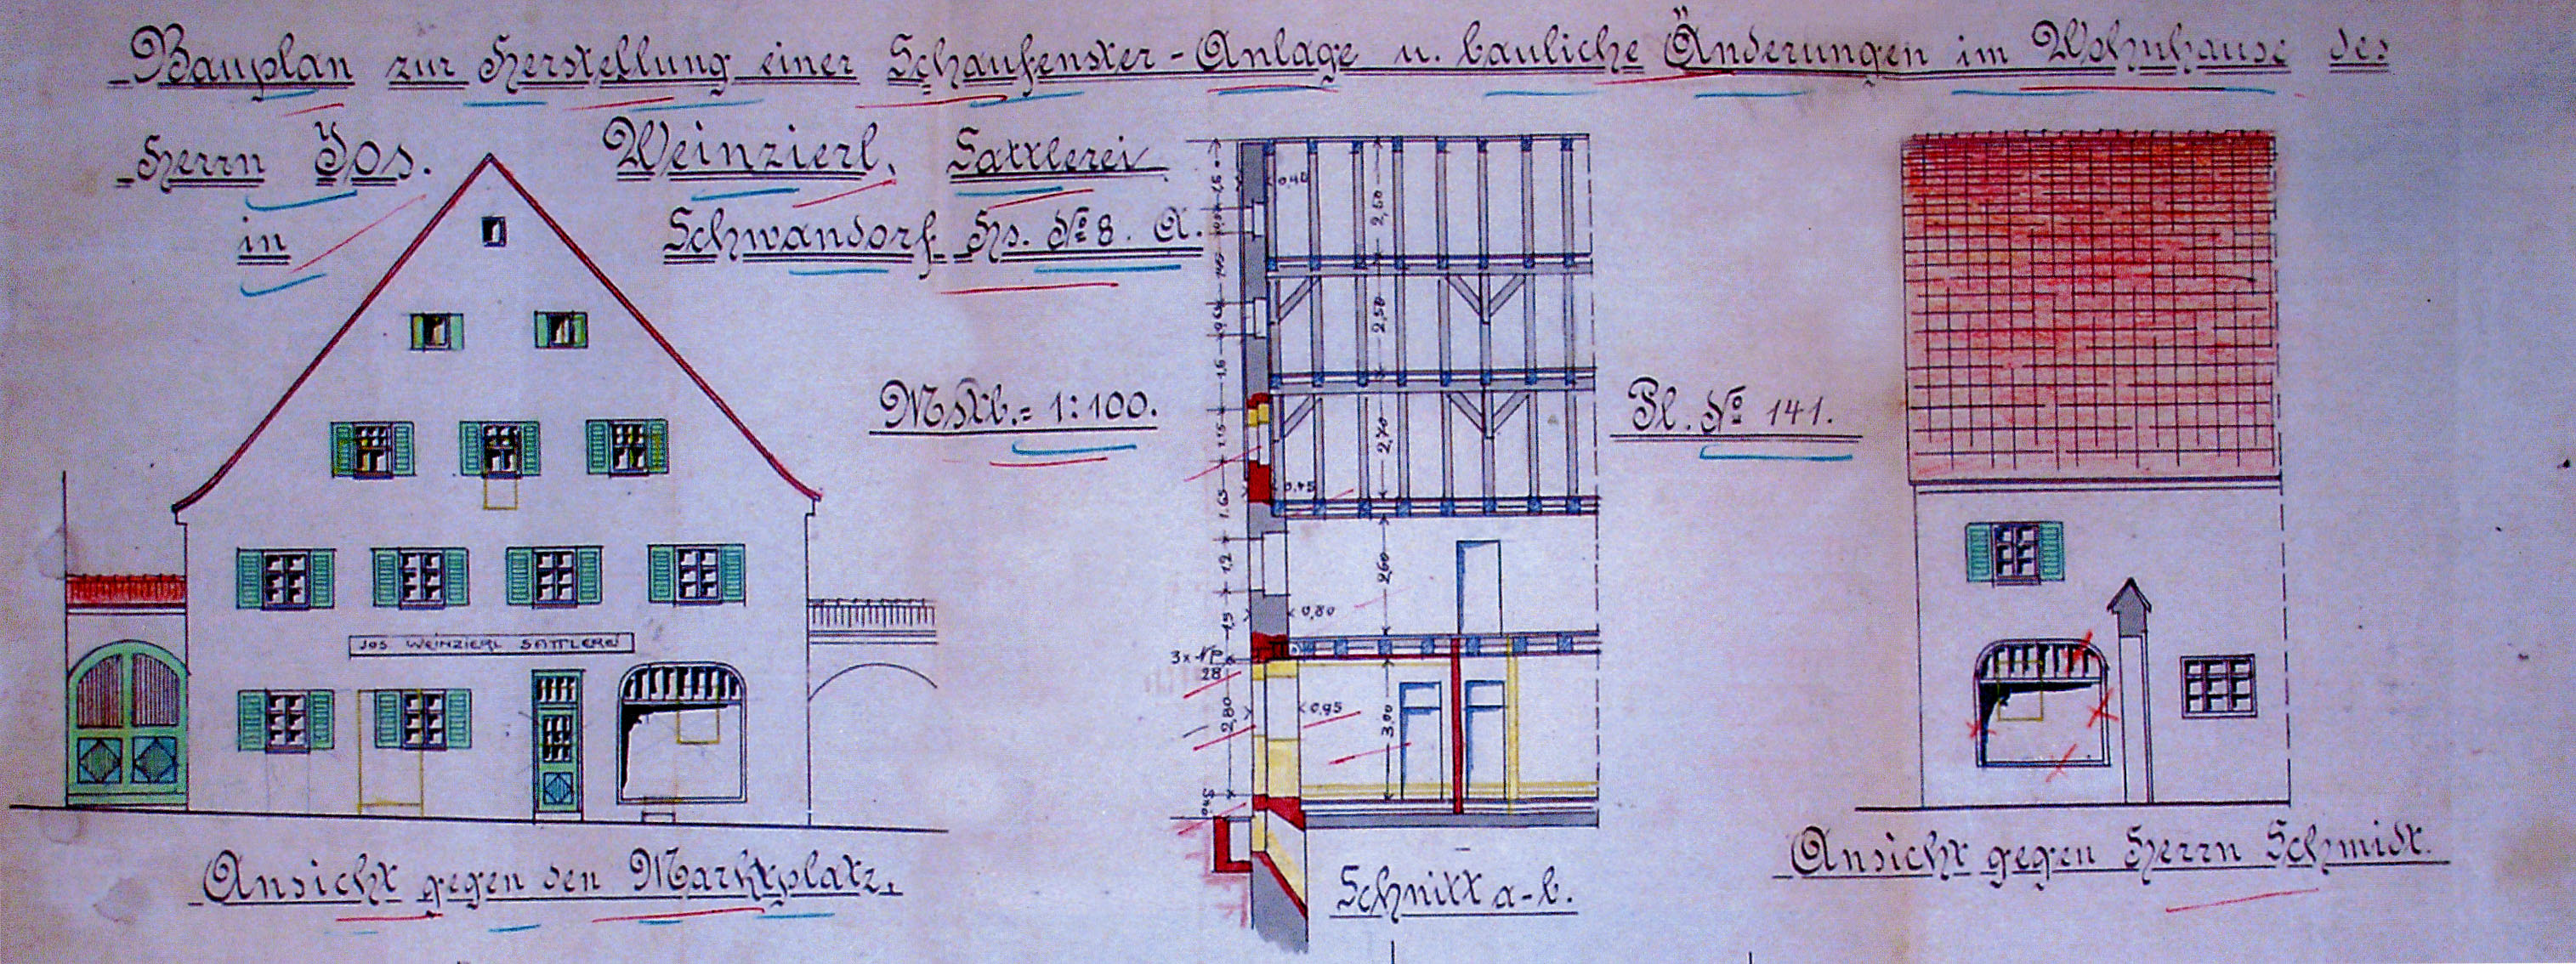 Bauplan zur Herstellung einer Schaufenster-Anlage u. bauliche Änderungen im Wohnhause des
Herrn Jos. Weinzierl, Sattlerei
in Schwandorf Hs. No 8. A.
Mstb. = 1:100.
Pl. No 141.
JOS WEINZIERL SATTLEREI
0,40
2,50
2,50
2,70
0,45
1,65
2,60
1,2
0,80
1,5
3 x NP
28
0,95
2,80
3,00
0,45
Ansicht gegen den Marktplatz.
Schnitt a-b.
Ansicht gegen Herrn Schmidt.